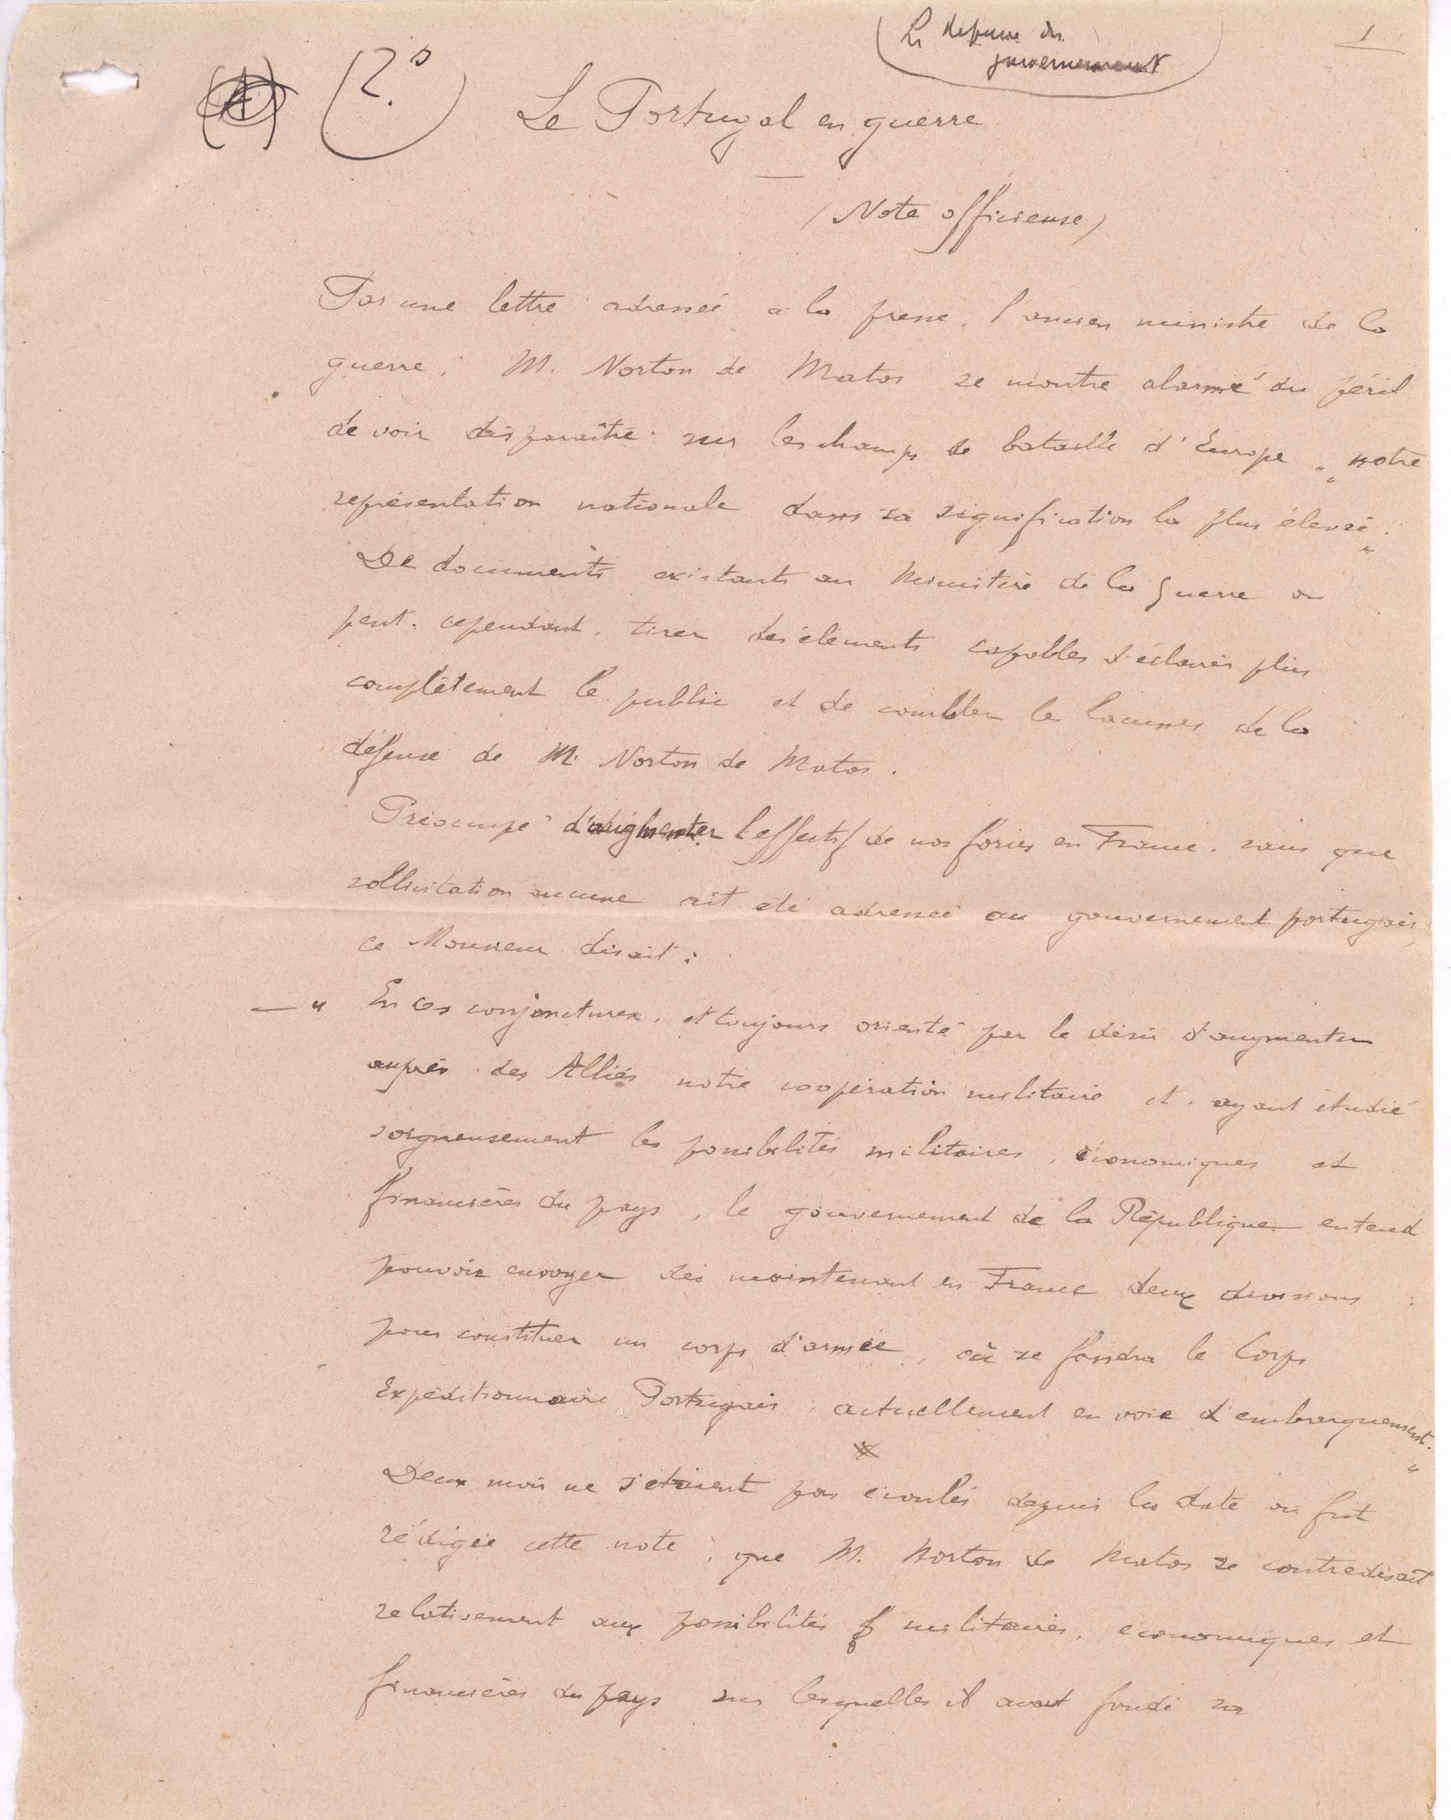 1
La defense du
gouvernement
(A) (2º)
Le Portugal en guerre
(Note officieuse)
Par une lettre adressée a la presse, l'ancien ministre de la
guerre, M. Norton de Matos se montre alarmé du péril
de voir disparaître sur les champs de bataille d'Europe „notre
représentation nationale dans sa signification la plus élevée„.
De documents existants au Ministère de la Guerre on
peut, cependant, tirer des éléments capables d'éclairer plus
complètement le public et de combler les lacunes de la
défense de M. Norton de Matos.
Préoccupé d'augmenter l'effectif de nos forces en France, sans que
sollicitation aucune ait été adressée au gouvernement portugais,
ce Monsieur disait:
— " En ces conjonctures, et toujours orienté par le désir d'augmenter
auprès des Alliés notre coopération militaire et, ayant étudié
soigneusement les possibilités militaires, économiques et
financières du pays, le gouvernement de la République entend
pouvoir envoyer dès maintenant en France deux divisions
pour constituer un corps d'armée, où se fondra le Corps
Expéditionnaire Portugais, actuellement en voie d'embarquement.„
Deux mois ne s'étaient pas écoulés depuis la date où fut
rédigée cette note, que M. Norton de Matos se contredisait
relativement aux possibilités militaires, économiques et
financières du pays sur lesquelles il avait fondé sa